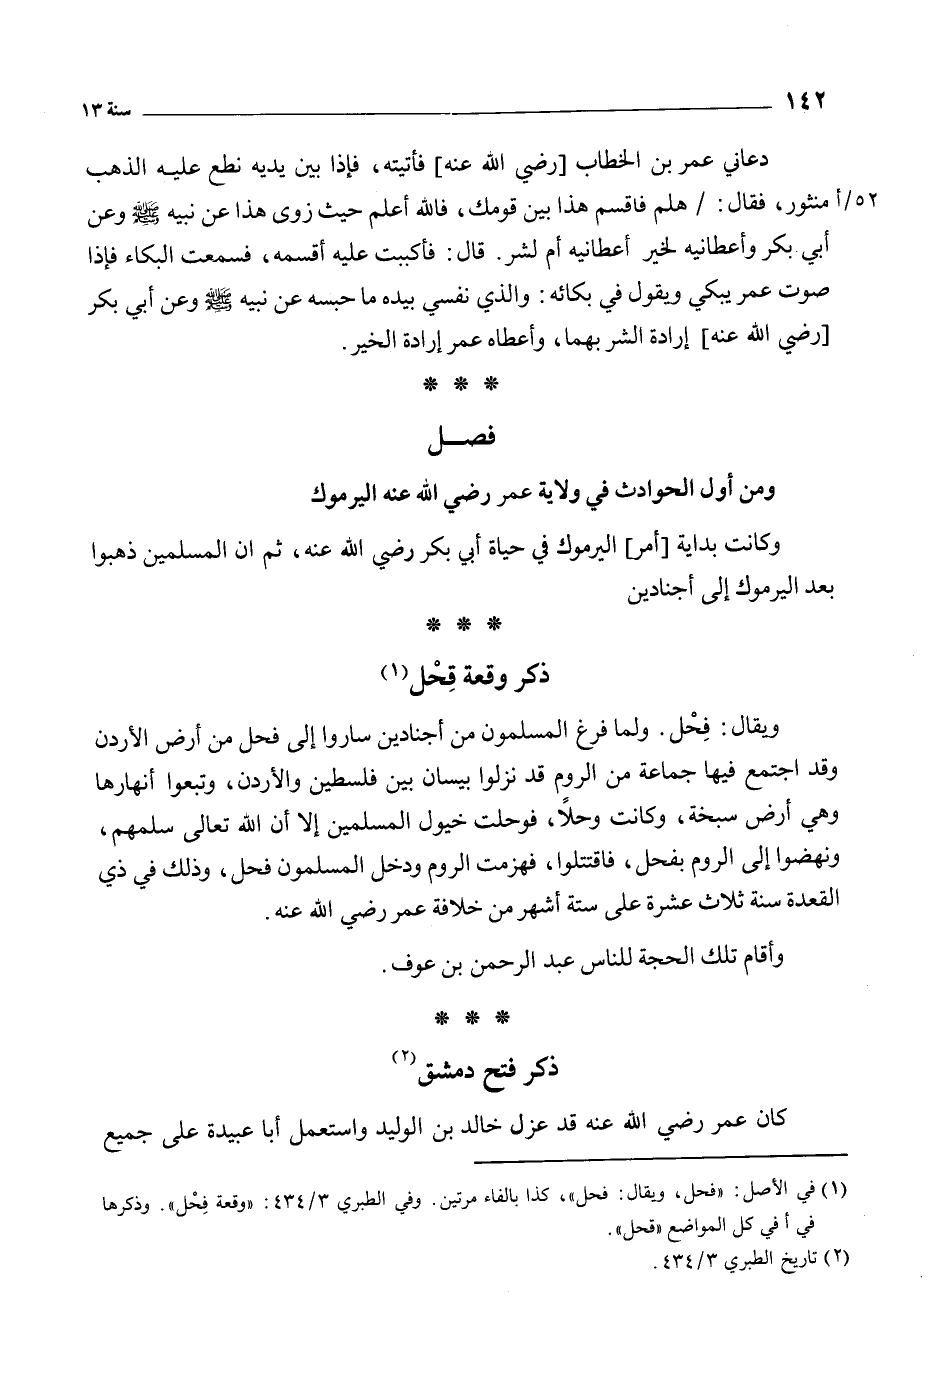 ١٤٢ سنة ١٣
دعاني عمر بن الخطاب [رضي الله عنه] فأتيته، فإذا بين يديه نطع عليه الذهب
٥٢/أ منثور، فقال: / هلم فاقسم هذا بين قومك، فالله أعلم حيث زوى هذا عن نبيه ﷺ وعن
أبي بكر وأعطانيه لخير أعطانيه أم لشر. قال: فأكببت عليه أقسمه، فسمعت البكاء فإذا
صوت عمر يبكي ويقول في بكائه: والذي نفسي بيده ما حبسه عن نبيه ﷺ وعن أبي بكر
[رضي الله عنه] إرادة الشر بهما، وأعطاه عمر إرادة الخير.
* * *
فصــل
ومن أول الحوادث في ولاية عمر رضي الله عنه اليرموك
وكانت بداية [أمر] اليرموك في حياة أبي بكر رضي الله عنه، ثم ان المسلمين ذهبوا
بعد اليرموك إلى أجنادين
* * *
ذكر وقعة قِحْل(١)
ويقال: فِحْل. ولما فرغ المسلمون من أجنادين ساروا إلى فحل من أرض الأردن
وقد اجتمع فيها جماعة من الروم قد نزلوا بيسان بين فلسطين والأردن، وتبعوا أنهارها
وهي أرض سبخة، وكانت وحلاً، فوحلت خيول المسلمين إلا أن الله تعالى سلمهم،
ونهضوا إلى الروم بفحل، فاقتتلوا، فهزمت الروم ودخل المسلمون فحل، وذلك في ذي
القعدة سنة ثلاث عشرة على ستة أشهر من خلافة عمر رضي الله عنه.
وأقام تلك الحجة للناس عبد الرحمن بن عوف.
* * *
ذكر فتح دمشق(٢)
كان عمر رضي الله عنه قد عزل خالد بن الوليد واستعمل أبا عبيدة على جميع
(١) في الأصل: «فحل، ويقال: فحل»، كذا بالفاء مرتين. وفي الطبري ٤٣٤/٣: «وقعة فِحْل». وذكرها
في أ في كل المواضع «قحل».
(٢) تاريخ الطبري ٤٣٤/٣.